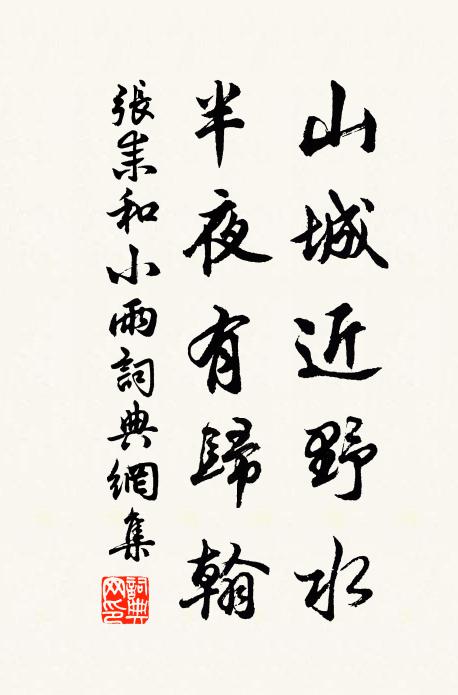 山城近野水
半夜有歸翰
張耒和小雨詞典網集
詞典網印